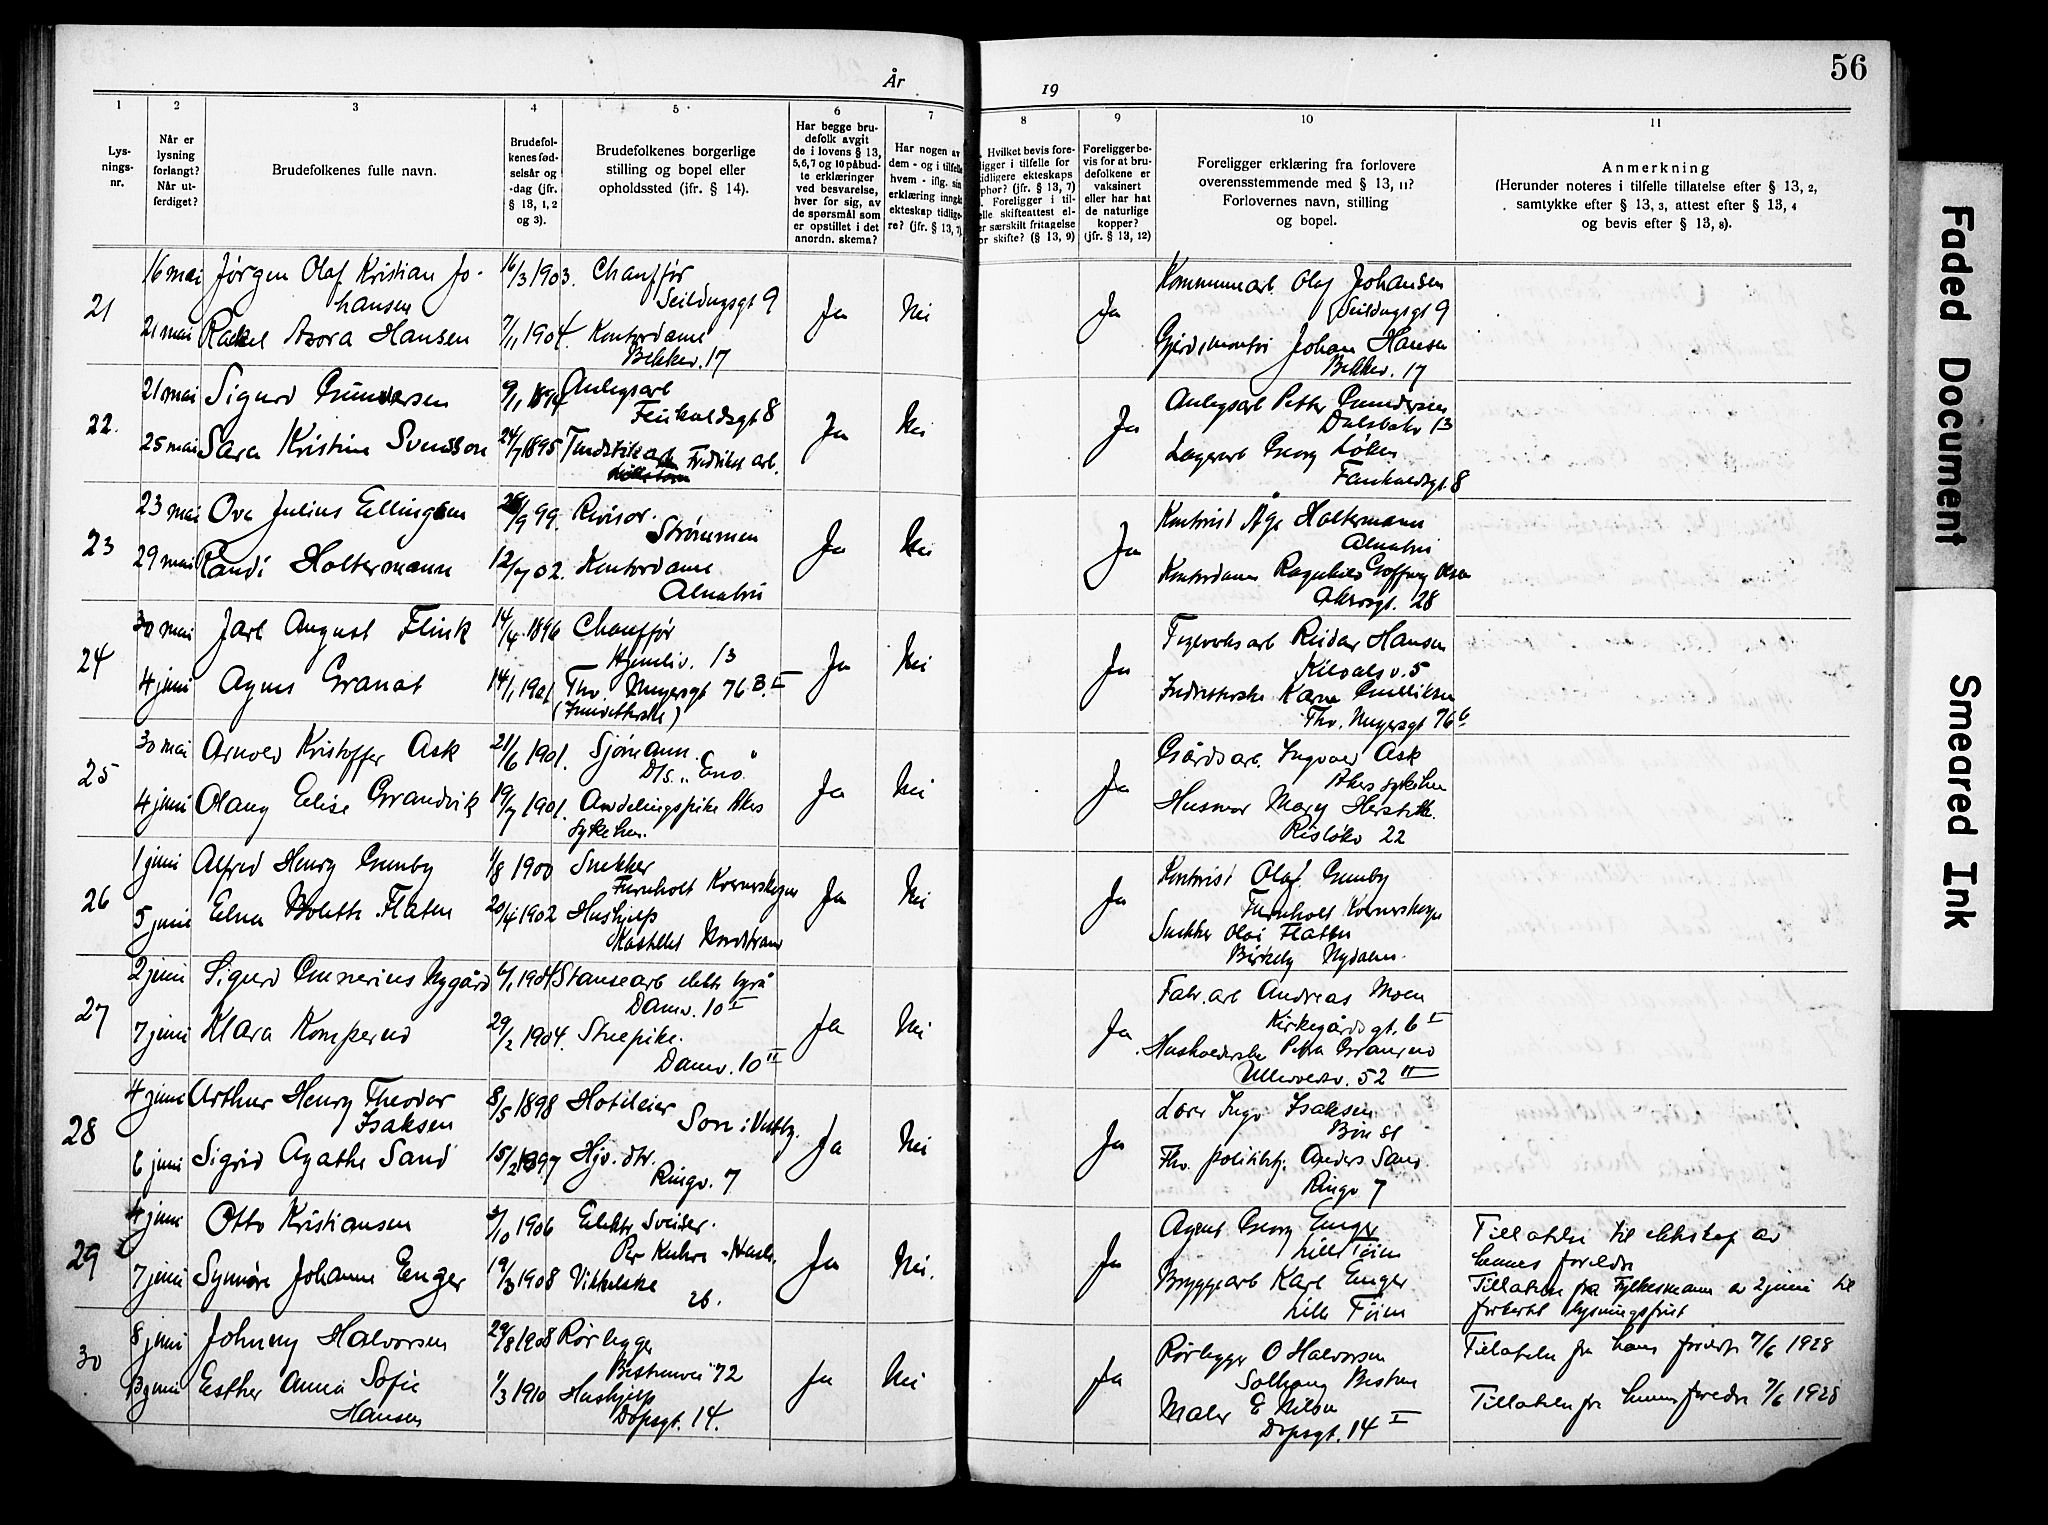 56
År
19
1
2
3
4
5
6
7
8
9
10
11
Lys-
nings-
nr.
Når er
lysning
forlangt?
Når ut-
ferdiget?
Brudefolkenes fulle navn.
Brudefol-
kenes fød-
selsår og
-dag (jfr.
§ 13, 1, 2
og 3).
Brudefolkenes borgerlige
stilling og bopel eller
opholdssted (jfr. § 14).
Har begge bru-
defolk avgit
de i lovens § 13,
5,6,7 og 10 påbud-
te erklæringer
ved besvarelse,
hver for sig, av
de spørsmål som
er opstillet i det
anordn. skema?
Har nogen av
dem - og i tilfelle
hvem - iflg. sin
erklæring inngå
ekteskap tidlige-
re? (jfr. § 13, 7)
Hvilket bevis fore-
ligger i tilfelle for
tidligere ekteskaps
ophør? (jfr. § 13, 7)
Foreligger i til-
elle skifteattest el-
er særskilt fritagelse
or skifte? (§ 13, 9)
Foreligger be-
vis for at bru-
defolkene er
vaksinert
eller har hat
de naturlige
kopper?
(jfr. § 13, 12)
Foreligger erklæring fra forlovere
overensstemmende med § 13, 11?
Forlovernes navn, stilling
og bopel.
Anmerkning
(Herunder noteres i tilfelle tillatelse efter § 13, 2,
samtykke efter § 13, 3, attest efter § 13, 4
og bevis efter § 13, 8).
21
16 mai Jørgen Olaf Kristian Jo-
hansen
16/3 1903. Chauffør
Seildugsgt 9
21 mai Rakel Asora Hansen
7/1 1904. Kontordame
Bekkev. 17
Ja Nei Ja
Kommunearb. Olaf Johansen
Seildugsgt 9
Johan Hansen
Bekkev. 17
22.
21 mai Sigurd Gundersen
9/1 Anlegsarb
8
25 mai Sara Kristine Svendson
24/7 1895 Fredrikst arb.
Ja Nei Ja
Anlegsarb Petter Gundersen
Dalsbakv 13
Lagerarb Georg Løken
8
23
23 mai Ove Julius Ellingsen
/9 99. Revisor.
Strømmen
29 mai Randi Holtermann
12/7 02. Kontordame
Alnabru
Ja Nei Ja
Kontorist Åge Holtermann
Alnabru
Kontordame Ragnhild Olsen
Akersgt. 28
24
30 mai Jarl August Flink
14/4 1896 Chauffør
Hjemliv. 13
4 juni Agnes Granat
14/1 1901 Thv. Meyersgt 76 B. I
Ja Nei Ja
Teglverksarb Reidar Hansen
v. 5
Thv. Meyersgt 76 b
25
30 mai Arnold Kristoffer Ask
21/6 1901. Sjømann.
D/s „Eno"
4 juni Olaug Elise Grandvik
19/7 1901. Avdelingspike Akers
sykehus.
Ja Nei Ja
Gårdsarb. Ingvald Ask
Akers sykehus
Husmor Mary
Risløkv 22
26
1 juni Alfred Henry Gumby
1/8 1900 Snekker
Furuholt
5 juni Elna Bolette Flaten
20/4 1902 Hushjelp
Kastellet Nordstrand
Ja Nei Ja
Kontorist Olaf Gumby
Furuholt
Snekker Olai Flaten
Birkeby Nydalen.
27
2 juni Sigurd Gunerius Nygård
6/1 1901 Stansearb elektr byrå
Damv. 10 I
7 juni Klara Komperud
29/2 1904. Stuepike.
Damv. 10 II
Ja Nei Ja.
Fabr. arb Andreas Moen
Kirkegårdsgt. 6 I
Husholderske Petra Grangerud
Ullevoldsv. 52 II
28
4 juni Arthur Henry Theodor
Isaksen
8/5 1898 Hoteleier
Son i Vestby.
6 juni Sigrid Agathe Sand
15/2 1897 Hjv. dtr.
Ringv. 7
Ja Nei Ja
Lærer Inge Isaksen
Bøn st
Fhv. politibtj. Anders Sand.
Ringv 7
29
4 juni Otto Kristiansen
/10 1906 Elektr Sveiser.
7 juni Synnøve Johanne Enger
19/3 1908
26.
Ja Nei. Ja
Agent Georg Enger
Lille Tøien
Bryggearb Karl Enger
Lille Tøien
Tillatelse til ekteskap av
hennes foreldre
Tillatelse fra Fylkesmann av 2 juni til
forkortet lysningsfrist
30
8 juni Johnny Halvorsen
29/8 1908 Rørlegger
Bestumvei 72
13 juni Esther Anna Sofie
Hansen
1/3 1910 Hushjelp
Dopsgt. 14.
Ja Nei Ja
Rørlegger O Halvorsen
Solhaug Bestum
Maler E Nilsen
Dopsgt. 14 I
Tillatelse fra hans foreldre 7/6 1928
Tillatelse fra hennes foreldre 7/6 1928
Faded Document
Smeared Ink